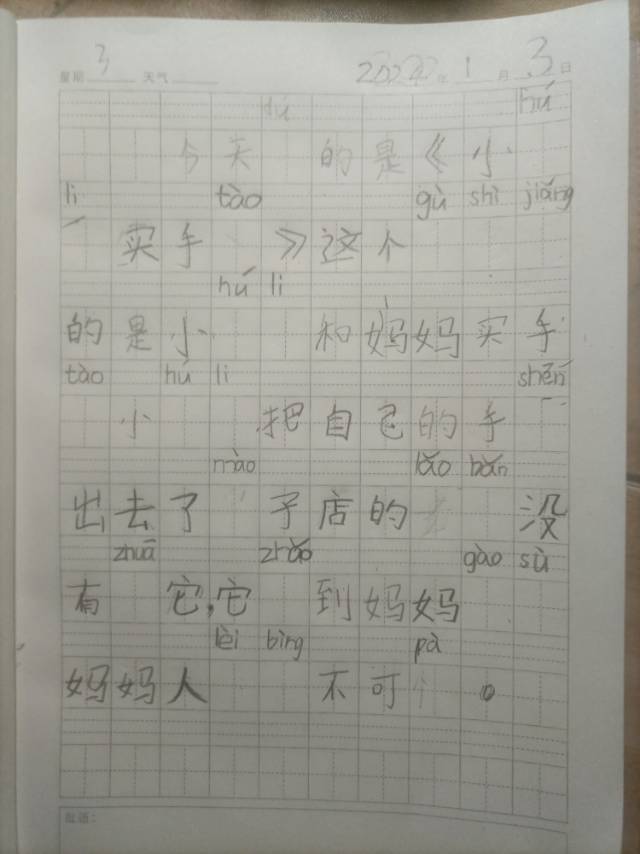 星期 3 天气 2024年 1月 3日
dú hú
今天 的是《小
li tào gù shì jiǎng
买手 》这个
hú li
的是小 和妈妈买手
tào hú li shēn
小 把自己的手
mào lǎo bǎn
出去了 子店的 没
zhuā zhǎo gào sù
有 它,它 到妈妈
lèi bìng pà
妈妈人 不可 。
批语: